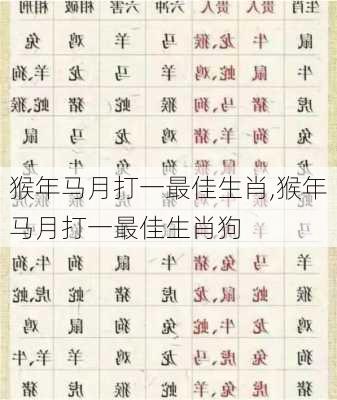 生肖 贵人 贵人 六冲 六害 相破 相刑
鼠 牛 龙、猴 马 羊 鸡 兔
牛 鼠 蛇、鸡 羊 马 龙 羊、狗
虎 猪 马、狗 猴 蛇 猪 蛇、猴
兔 狗 羊、猪 鸡 龙 马 鼠
猴年马月打一最佳生肖,猴年
马月打一最佳生肖狗
羊 马 兔、猪 牛 鼠 狗 牛、狗
猴 蛇 鼠、龙 虎 猪 蛇 虎、蛇
鸡 龙 牛、蛇 兔 狗 鼠 鸡
狗 兔 虎、马 龙 鸡 羊 牛、羊
猪 虎 兔、羊 蛇 猴 虎 猪